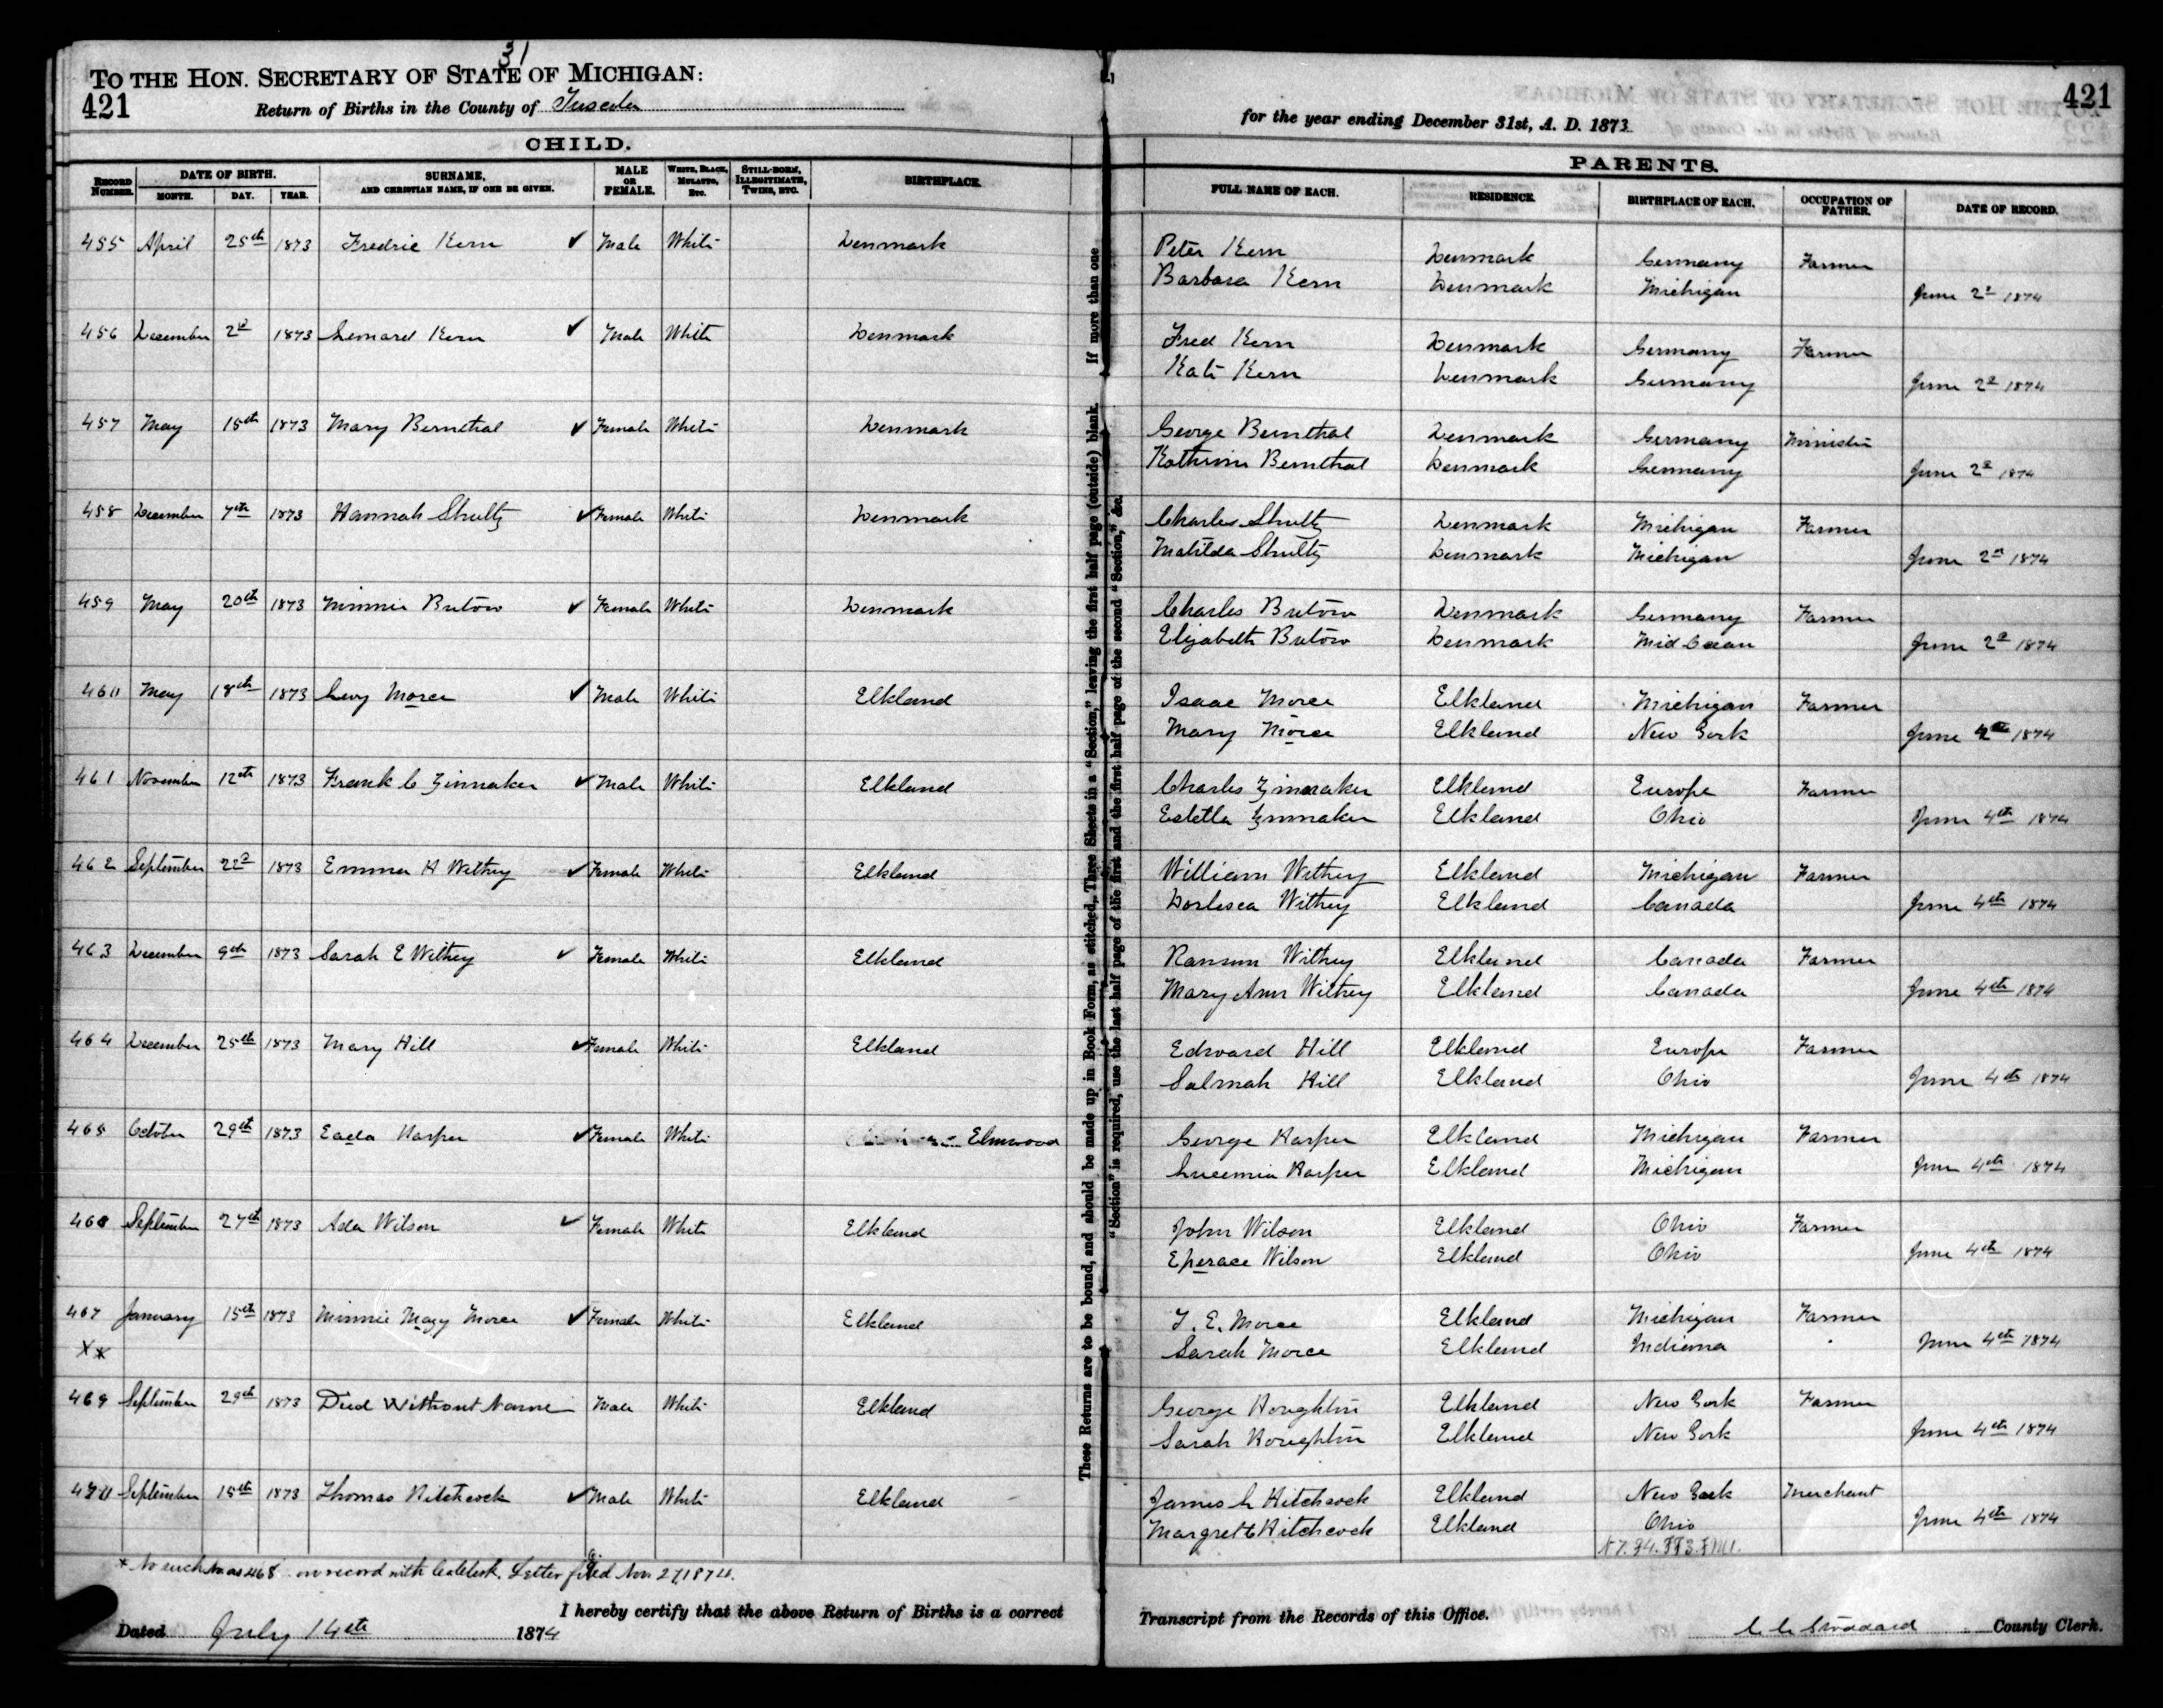 31
TO THE HON. SECRETARY OF STATE OF MICHIGAN:
421 Return of Births in the County of Tuscola for the year ending December 31st, A. D. 1873. 421
CHILD. PARENTS.
RECORD NUMBER. DATE OF BIRTH. MONTH. DAY. YEAR. SURNAME, AND CHRISTIAN NAME, IF ONE BE GIVEN. MALE OR FEMALE. WHITE, BLACK, MULATTO, ETC. STILL-BORN, ILLEGITIMATE, TWINS, ETC. BIRTHPLACE. FULL NAME OF EACH. RESIDENCE. BIRTHPLACE OF EACH. OCCUPATION OF FATHER. DATE OF RECORD.
455 April 25th 1873 Fredric Kern ✓ Male White Denmark Peter Kern Denmark Germany Farmer
Barbara Kern Denmark Michigan June 2d 1874
456 December 2d 1873 Leonard Kern ✓ Male White Denmark Fred Kern Denmark Germany Farmer
Kate Kern Denmark Germany June 2d 1874
457 May 15th 1873 Mary Bernthal ✓ Female White Denmark George Bernthal Denmark Germany Minister
Kathrine Bernthal Denmark Germany June 2d 1874
458 December 7th 1873 Hannah Shultz ✓ Female White Denmark Charles Shultz Denmark Michigan Farmer
Matilda Shultz Denmark Michigan June 2d 1874
459 May 20th 1873 Minnie Butow ✓ Female White Denmark Charles Butow Denmark Germany Farmer
Elizabeth Butow Denmark Mid Ocean June 2d 1874
460 May 18th 1873 Levy Morce ✓ Male White Elkland Isaac Morce Elkland Michigan Farmer
Mary Morce Elkland New York June 4th 1874
461 November 12th 1873 Frank C Zinnaker ✓ Male White Elkland Charles Zinnaker Elkland Europe Farmer
Estella Zinnaker Elkland Ohio June 4th 1874
462 September 22d 1873 Emma H Withey ✓ Female White Elkland William Withey Elkland Michigan Farmer
Dorlesca Withey Elkland Canada June 4th 1874
463 December 9th 1873 Sarah E Withey ✓ Female White Elkland Ransom Withey Elkland Canada Farmer
Mary Ann Withey Elkland Canada June 4th 1874
464 December 25th 1873 Mary Hill ✓ Female White Elkland Edward Hill Elkland Europe Farmer
Salmah Hill Elkland Ohio June 4th 1874
465 October 29th 1873 Eada Harper ✓ Female White Elmwood George Harper Elkland Michigan Farmer
Lucemia Harper Elkland Michigan June 4th 1874
466 September 27th 1873 Ada Wilson ✓ Female White Elkland John Wilson Elkland Ohio Farmer
Eperace Wilson Elkland Ohio June 4th 1874
467 January 15th 1873 Minnie Mazy Morce ✓ Female White Elkland T. E. Morce Elkland Michigan Farmer
X* Sarah Morce Elkland Indiana June 4th 1874
469 September 29th 1873 Died Without Name Male White Elkland George Houghtin Elkland New York Farmer
Sarah Houghtin Elkland New York June 4th 1874
470 September 15th 1873 Thomas Hitchcock ✓ Male White Elkland James L Hitchcock Elkland New York Merchant
Margrett Hitchcock Elkland Ohio June 4th 1874
* No such No as 468 on record with Co clerk. Letter filed Nov. 27, 1874.
I hereby certify that the above Return of Births is a correct Transcript from the Records of this Office.
Dated July 14th 1874 C C Stoddard County Clerk.
These Returns are to be bound, and should be made up in Book Form, as stitched, Three Sheets in a "Section," leaving the first half page (outside) blank. If more than one
"Section" is required, use the last half page of the first and the first half page of the second "Section," &c.